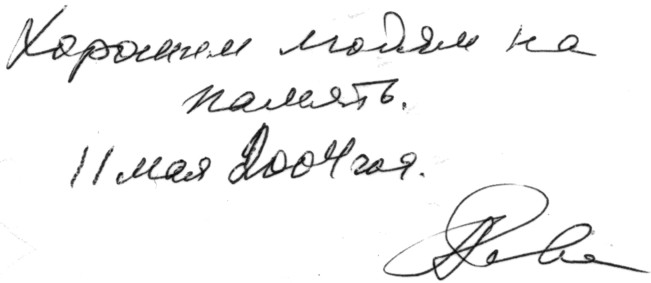 Хорошим людям на
память.
11 мая 2004 год.